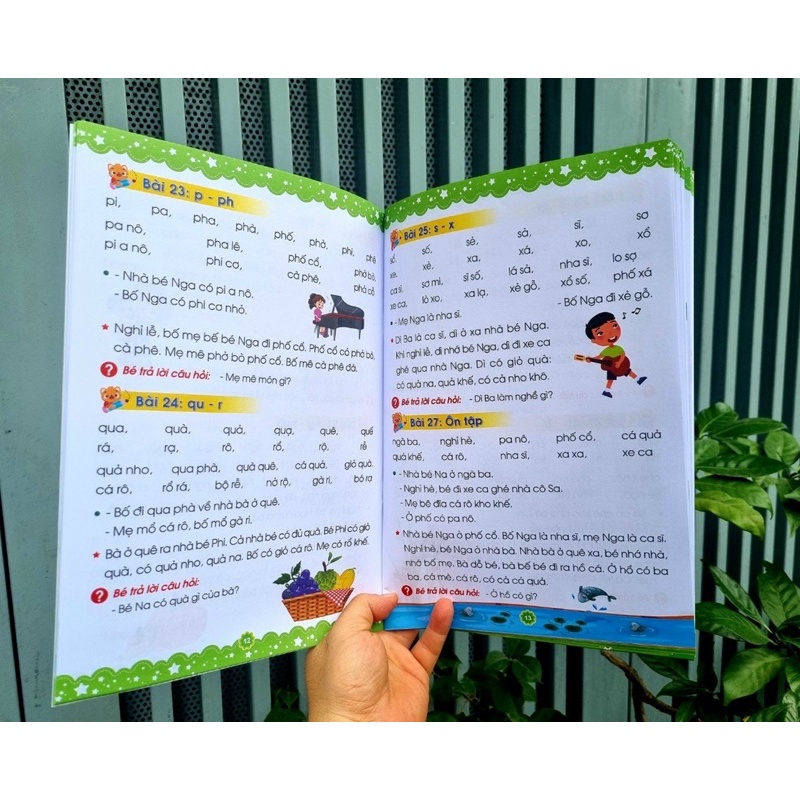 Bài 23: p - ph
pi, pa, pha, phà, phố, phở, phi, phê
pa nô, pha lê, phố cổ, phở bò,
pi a nô, phi cơ, cà phê, phá cỗ
- Nhà bé Nga có pi a nô.
- Bố Nga có phi cơ nhỏ.
Nghỉ lễ, bố mẹ bế bé Nga đi phố cổ. Phố cổ có phở bò,
cà phê. Mẹ mê phở bò phố cổ. Bố mê cà phê đá.
? Bé trả lời câu hỏi: - Mẹ mê món gì?
Bài 24: qu - r
qua, quà, quả, quạ, quê, quế
rá, rạ, rô, rổ, rộ, rễ
quả nho, qua phà, quà quê, cá quả, giỏ quả.
cá rô, rổ rá, bộ rễ, nở rộ, gà ri, bó rạ
- Bố đi qua phà về nhà bà ở quê.
- Mẹ mổ cá rô, bố mổ gà ri.
Bà ở quê ra nhà bé Phi. Cả nhà bé có đủ quà. Bé Phi có giỏ
quà, có quả nho, quả na. Bố có giỏ cá rô. Mẹ có rổ khế.
? Bé trả lời câu hỏi:
- Bé Na có quà gì của bà?
12
Bài 25: s - x
số, sẻ, sả, sĩ, sơ
xe, xẻ, xa, xá, xo, xổ
ca sĩ, sơ mi, sĩ số, lá sả, nha sĩ, lo sợ
xe ca, lò xo, xa lạ, xẻ gỗ, xổ số, phố xá
- Mẹ Nga là nha sĩ. - Bố Nga đi xẻ gỗ.
Dì Ba là ca sĩ, dì ở xa nhà bé Nga.
Khi nghỉ lễ, dì nhớ bé Nga, dì đi xe ca
ghé qua nhà Nga. Dì có giỏ quà:
có quả na, quả khế, có cả nho khô.
? Bé trả lời câu hỏi: - Dì Ba làm nghề gì?
Bài 27: Ôn tập
ngã ba, nghỉ hè, pa nô, phố cổ, cá quả
quả khế, cà rô, nha sĩ, xa xa, xe ca
- Nhà bé Na ở ngã ba.
- Nghỉ hè, bé đi xe ca ghé nhà cô Sa.
- Mẹ bê đĩa cá rô kho khế.
- Ở phố có pa nô.
Nhà bé Nga ở phố cổ. Bố Nga là nha sĩ, mẹ Nga là ca sĩ.
Nghỉ hè, bé Nga ở nhà bà. Nhà bà ở quê xa, bé nhớ nhà,
nhớ bố mẹ. Bà dỗ bé, bà bế bé đi ra hồ cá. Ở hồ có ba
ba, cá mè, cá rô, có cả cá quả.
? Bé trả lời câu hỏi: - Ở hồ có gì?
13